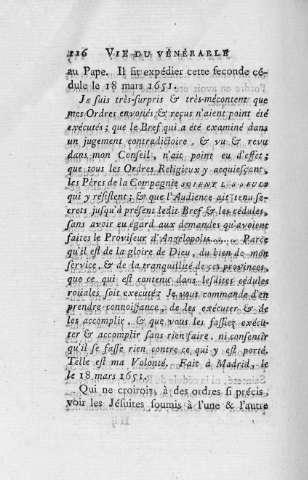 116 VIE DU VÉNÉRABLE
au Pape. Il fit expédier cette seconde cé-
dule le 18 mars 1651.
Je suis très-surpris & très-mécontent que
mes Ordres envoiés & reçus n'aient point été
exécutés ; que le Bref qui a été examiné dans
un jugement contradictoire, & vu & revu
dans mon Conseil, n'ait point eu d'effet ;
que tous les Ordres Religieux y acquiescent,
les Péres de la Compagnie SOIENT LES SEULS
qui y résistent ; & que l'Audience ait tenu se-
crets jusqu'à présent ledit Bref & les cédules,
sans avoir eu égard aux demandes qu'avoient
faites le Proviseur d'Angelopolis ..... Parce
qu'il est de la gloire de Dieu, du bien de mon
service, & de la tranquillité de ces provinces,
que ce qui est contenu dans lesdites cédules
roiales, soit exécuté ; Je vous commande d'en
prendre connoissance, de les exécuter & de
les accomplir, & que vous les fassiez exécu-
ter & accomplir sans rien faire, ni consentir
qu'il se fasse rien contre ce qui y est porté.
Telle est ma Volonté. Fait à Madrid, le
le 18 mars 1651.
Qui ne croiroit, à des ordres si précis,
voir les Jésuites soumis à l'une & l'autre